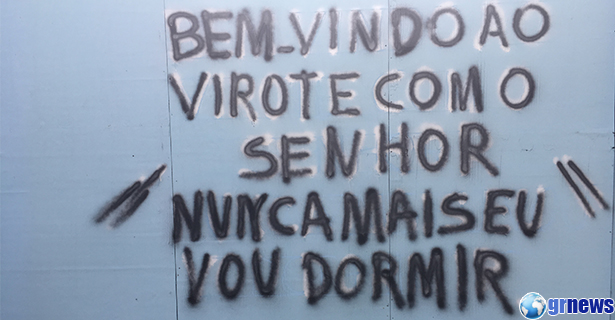 BEM-VINDO AO
VIROTE COM O
SENHOR
"NUNCA MAIS EU"
VOU DORMIR
grnews